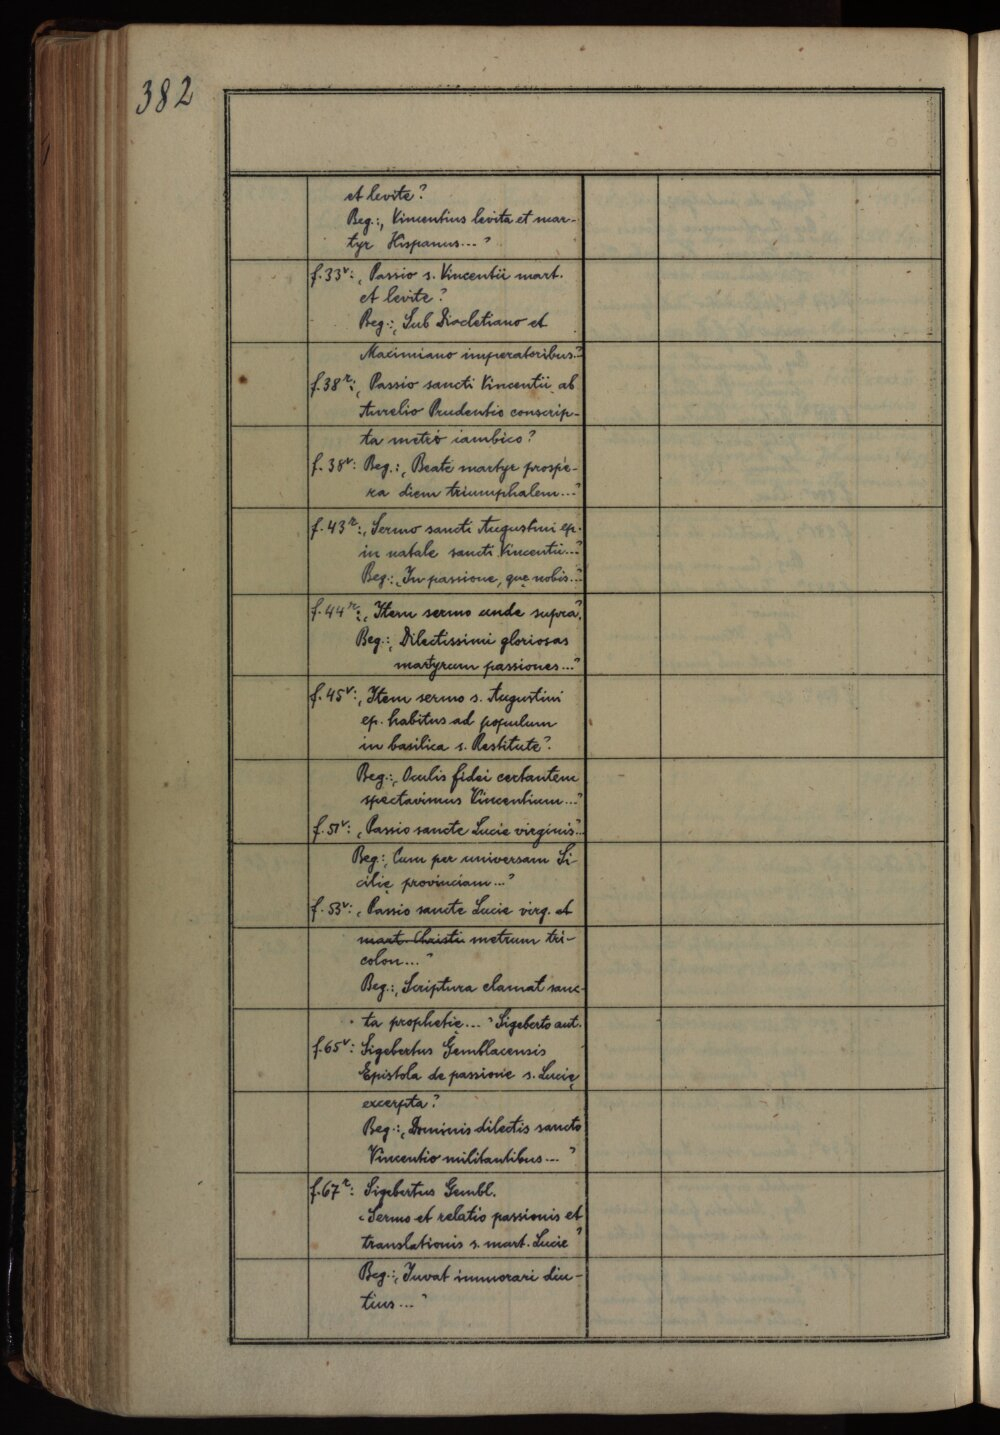 382
et levite?
Beg.: „Vincentius levita et mar-
tyr Hispanus..."
f. 33v: „Passio s. Vincentii mart.
et levite?
Beg.: „Sub Diocletiano et
Maximiano imperatoribus."
f. 38r: „Passio sancti Vincentii ab
Aurelio Prudentio conscrip-
ta metro iambico?
f. 38v: Beg.: „Beate martyr prospe-
ra diem triumphalem..."
f. 43r: „Sermo sancti Augustini ep.
in natale sancti Vincentii..."
Beg.: „In passione, quę nobis..."
f. 44r: „Item sermo unde supra?
Beg.: „Dilectissimi gloriosas
martyrum passiones..."
f. 45v: „Item sermo s. Augustini
ep. habitus ad populum
in basilica s. Restitute?
Beg.: „Oculis fidei certantem
spectavimus Vincentium..."
f. 51v: „Passio sancte Lucie virginis".
Beg.: „Cum per universam Si-
cilię provinciam..."
f. 53v: „Passio sancte Lucie virg. et
mart. Christi metrum tri-
colon..."
Beg.: „Scriptura clamat sanc-
ta prophetię..." Sigeberto aut.
f. 65v: Sigebertus Gemblacensis
Epistola de passione s. Lucię
excerpta?
Beg.: „Dominis dilectis sancto
Vincentio militantibus..."
f. 67r: Sigebertus Gembl.
„Sermo et relatio passionis et
translationis s. mart. Lucie"
Beg.: „Iuvat immorari diu-
tius..."